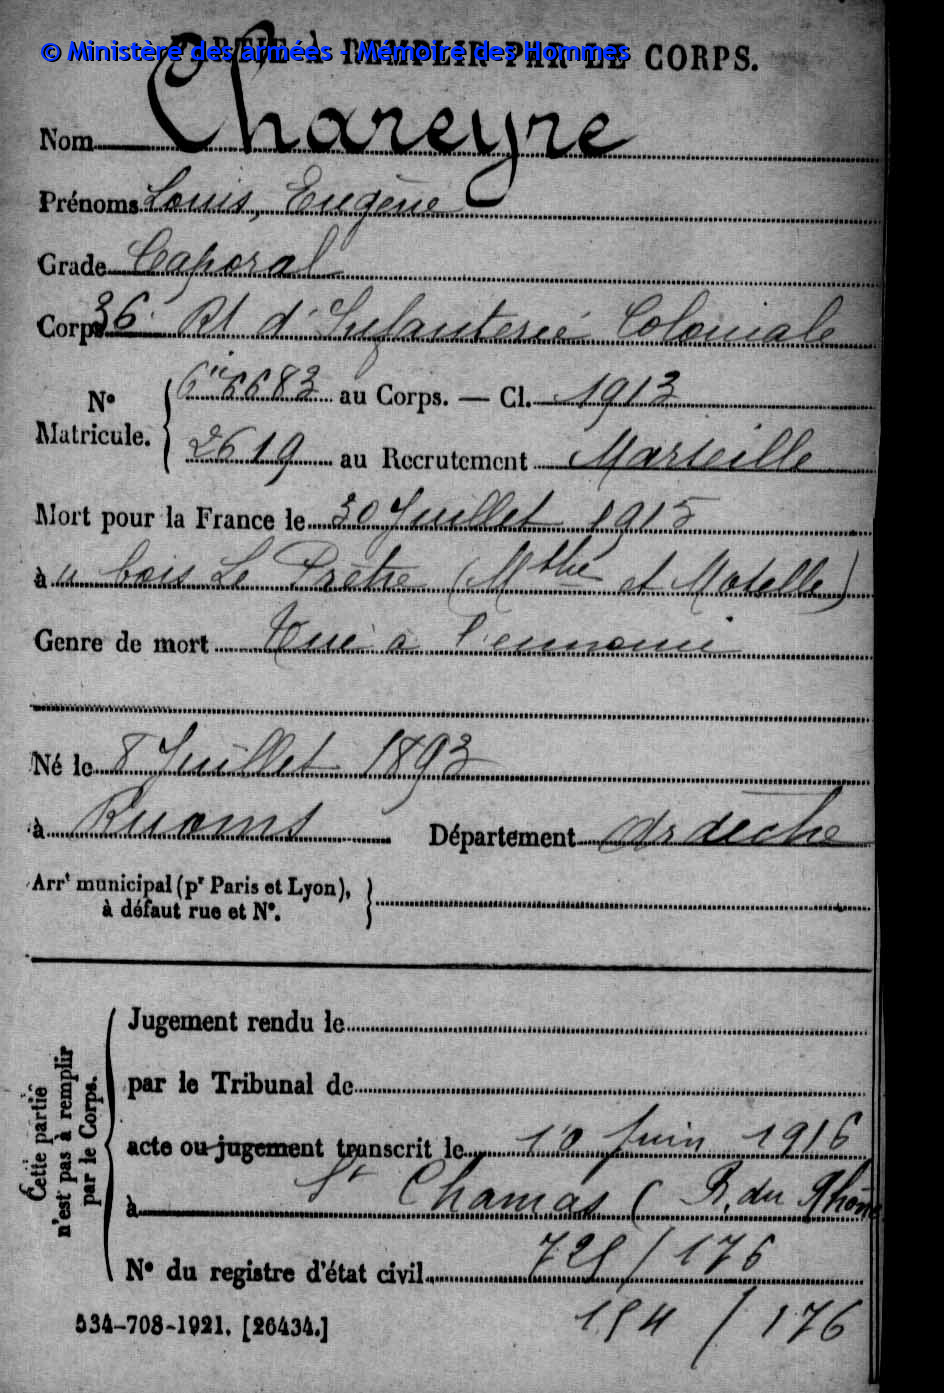 © Ministère des armées - Mémoire des Hommes
PARTIE À REMPLIR PAR LE CORPS.
Nom Chareyre
Prénoms Louis, Eugène
Grade Caporal
Corps 36 Rt d'Infanterie Coloniale
No Matricule. { 6683 au Corps. — Cl. 1913
2619 au Recrutement Marseille
Mort pour la France le 30 Juillet 1915
à " bois Le Prêtre (Mthe et Moselle)
Genre de mort Tué à l'ennemi
Né le 8 Juillet 1893
à Ruoms Département Ardèche
Arrt municipal (pr Paris et Lyon),
à défaut rue et No.
Cette partie
n'est pas à remplir
par le Corps.
Jugement rendu le
par le Tribunal de
acte ou jugement transcrit le 10 Juin 1916
à St Chamas (B. du Rhône
No du registre d'état civil
/ 176
534-708-1921. [26434.]
/ 176